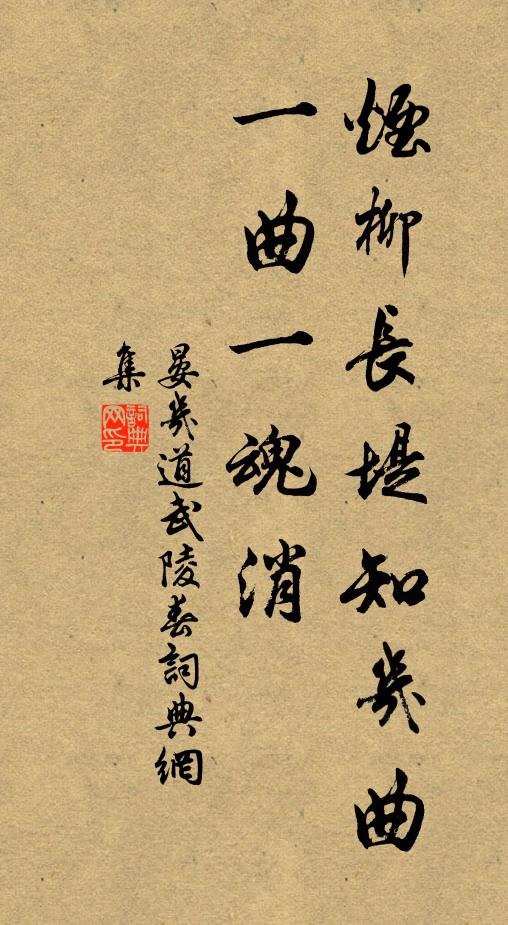 煙柳長堤知幾曲
一曲一魂消
晏幾道武陵春詞典網
集
詞典網印